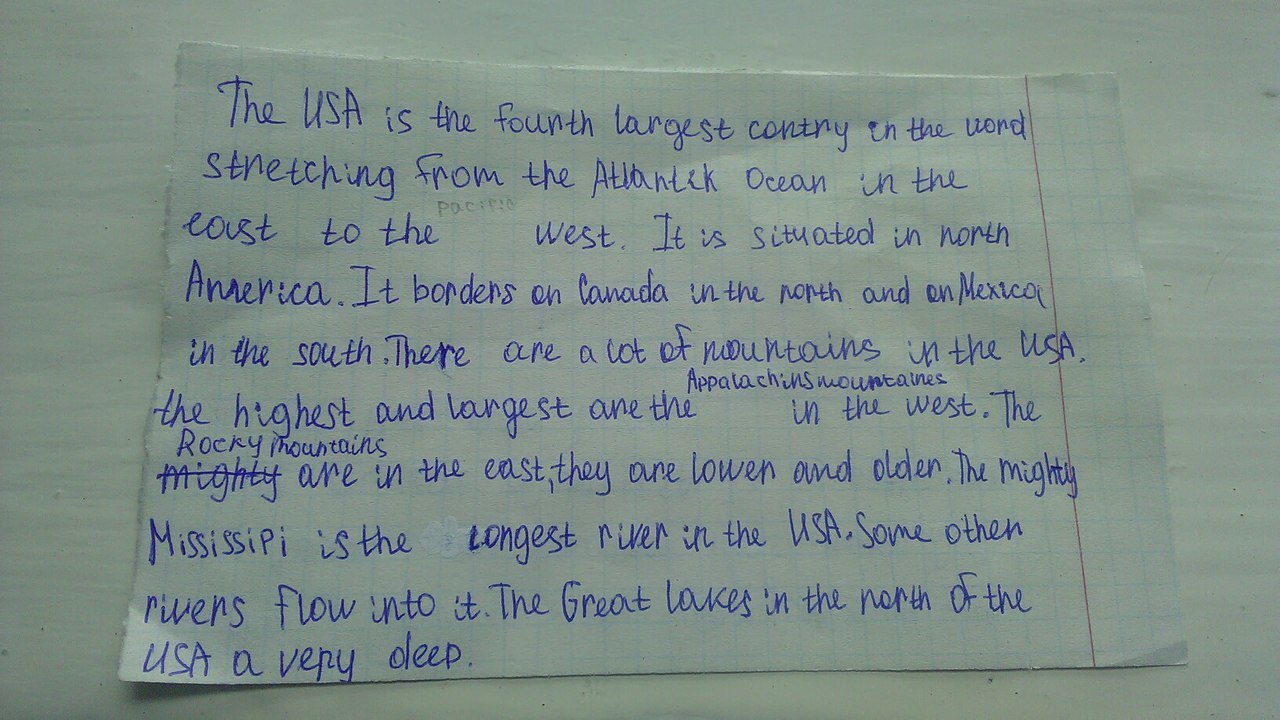 The USA is the fourth largest contry in the word
stretching from the Atlantik Ocean in the
pacific
east to the west. It is situated in north
America. It borders on Canada in the north and on Mexica
in the south. There are a lot of mountains in the USA.
Appalachins mountaines
the highest and largest are the in the west. The
Rocky mountains
mighty are in the east, they are lower and older. The mighty
Mississipi is the longest river in the USA. Some other
rivers flow into it. The Great lakes in the north of the
USA a very deep.